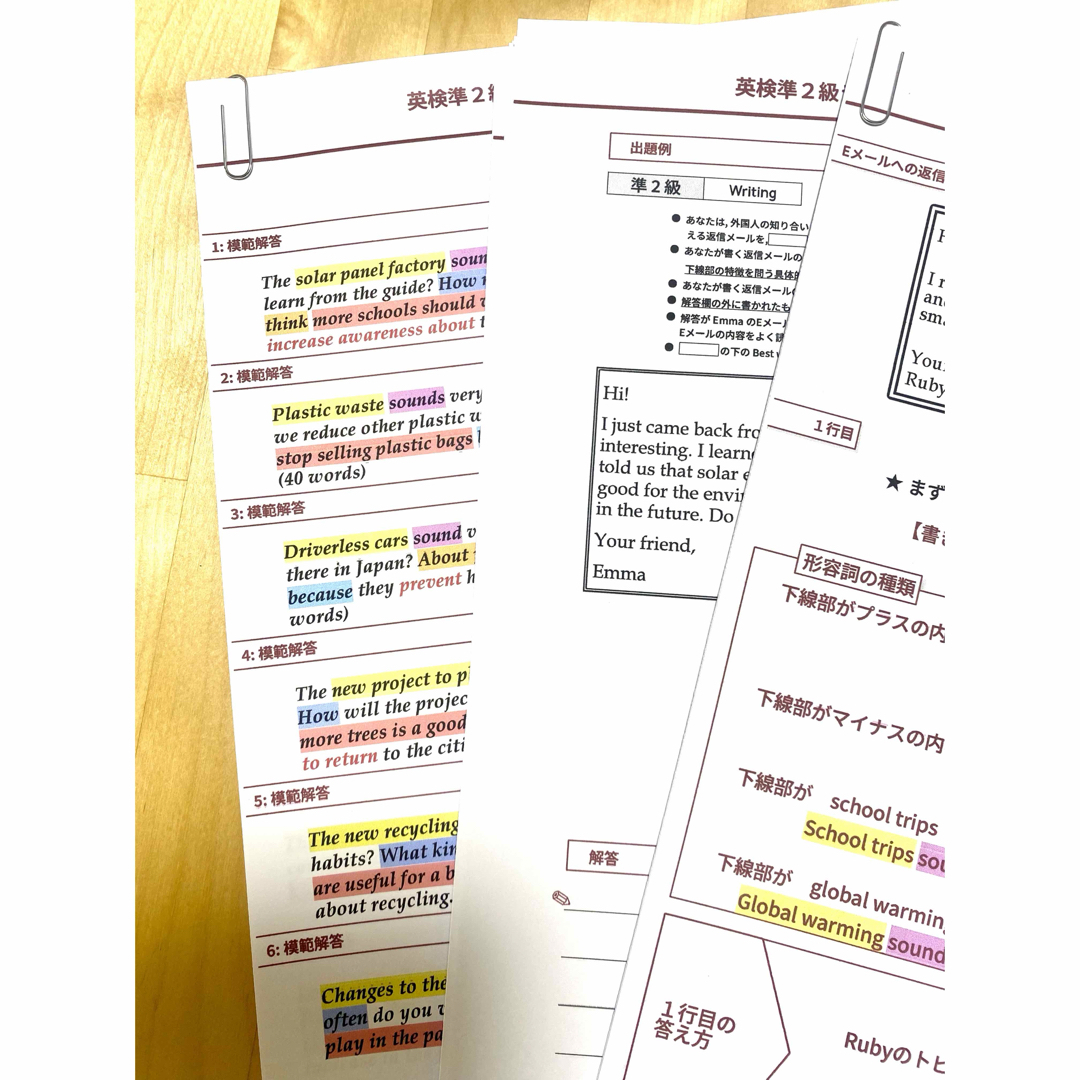 英検準２級
1: 模範解答
The solar panel factory
learn from the guide? How
think more schools should
increase awareness about
2: 模範解答
Plastic waste sounds very
we reduce other plastic
stop selling plastic bags
(40 words)
3: 模範解答
Driverless cars sound
there in Japan? About
because they prevent
words)
4: 模範解答
The new project to
How will the
more trees is a good
to return to the
5: 模範解答
The new recycling
habits? What
are useful for a
about recycling.
6: 模範解答
Changes to the
often do you
play in the
英検準２級
出題例
準２級 Writing
● あなたは, 外国人の知り合い
える返信メールを,
● あなたが書く返信メールの
下線部の特徴を問う具体的
● あなたが書く返信メール
● 解答欄の外に書かれたも
● 解答が Emma のEメー
Eメールの内容をよく読
● の下の Best
Hi!
I just came back
interesting. I
told us that solar
good for the
in the future. Do
Your friend,
Emma
解答
Eメールへの返信
Ruby
１行目
★ まず
【書き
形容詞の種類
下線部がプラスの内
下線部がマイナスの内
下線部が school trips
School trips
下線部が global warming
Global warming sound
１行目の
答え方
Rubyのトピ